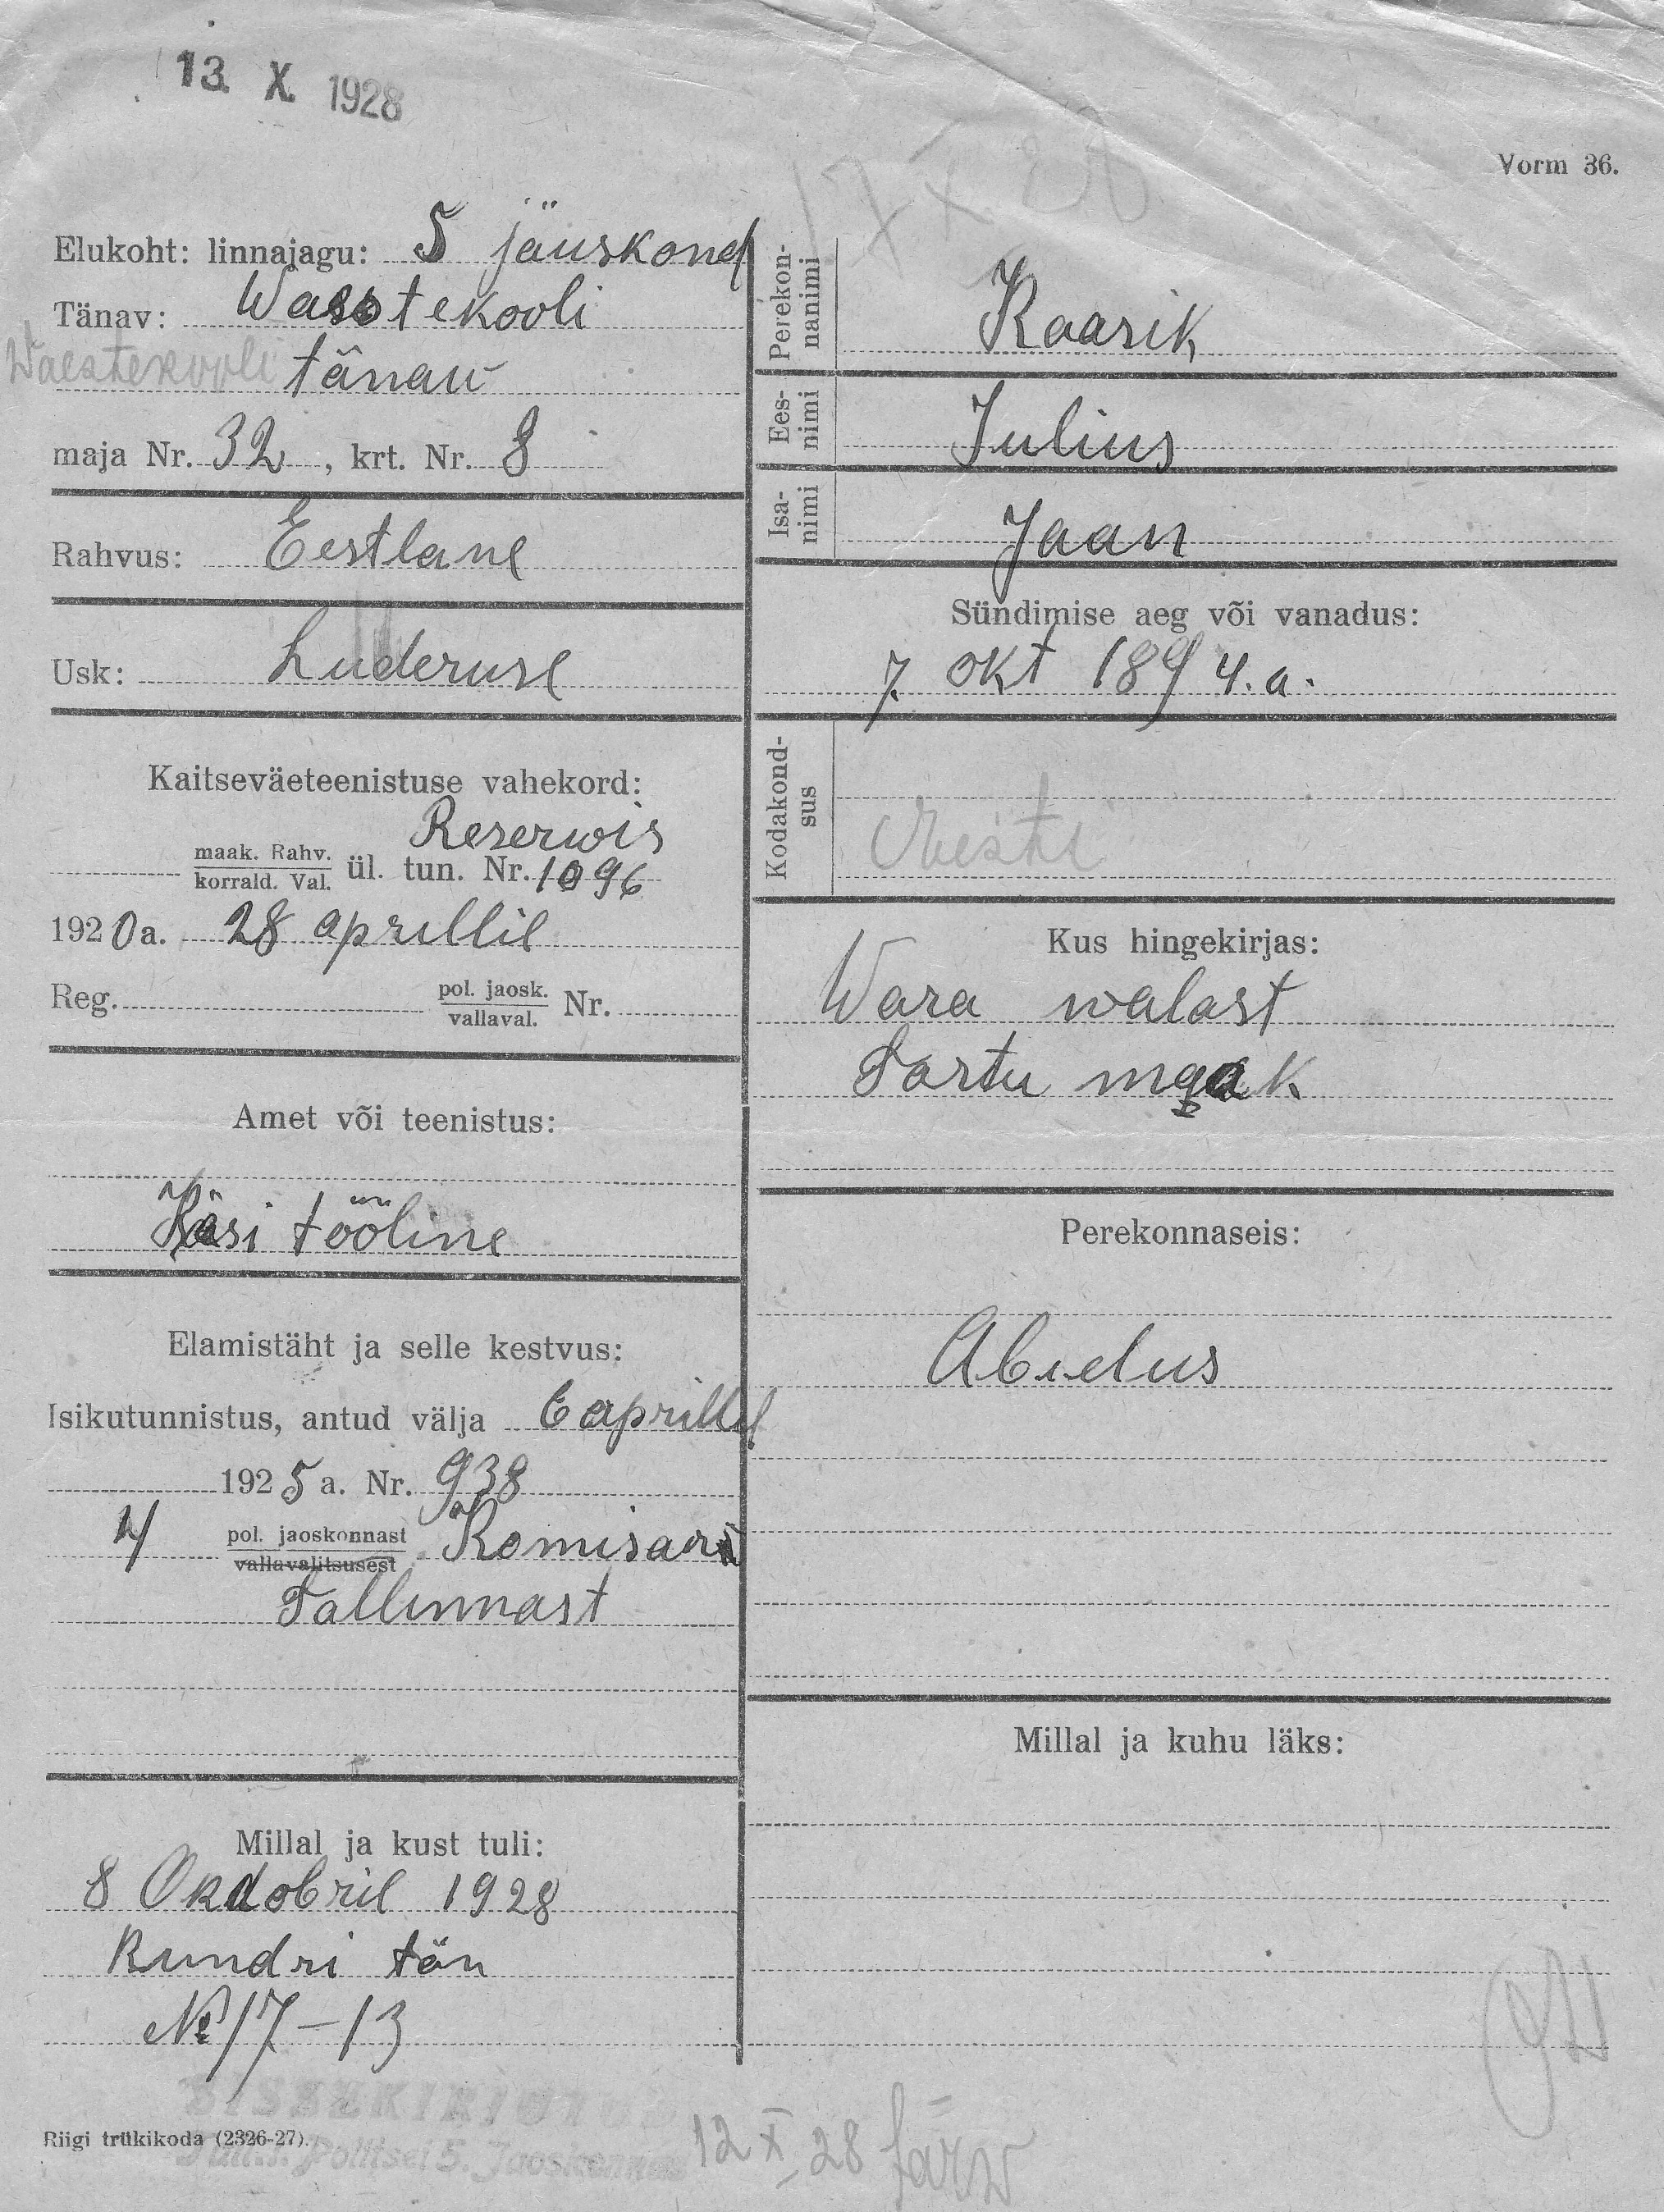 13. X. 1928
Vorm 36.
Elukoht: linnajagu: 5 jäuskond
Tänav: Waestekooli
Waestekooli tänaw
maja Nr. 32, krt. Nr. 8
Rahvus: Eestlane
Usk: Luderuse
Kaitseväeteenistuse vahekord:
Reserwis
maak. Rahv.
korrald. Val. ül. tun. Nr. 1096
1920a. 28 aprillil
Reg. pol. jaosk. Nr.
vallaval.
Amet või teenistus:
Käsi tööline
Elamistäht ja selle kestvus:
Isikutunnistus, antud välja 6 aprillil
1925 a. Nr. 938
4 pol. jaoskonnast Komisari
vallavalitsusest
Tallinnast
Millal ja kust tuli:
8 Okdobril 1928
Kundri tän
№ 17-13
Perekon-
nanimi Kaasik
Ees-
nimi Julius
Isa-
nimi Jaan
Sündimise aeg või vanadus:
7. okt 1894. a.
Kodakond-
sus Eesti
Kus hingekirjas:
Wara walast
Tartu maak
Perekonnaseis:
Abielus
Millal ja kuhu läks:
SISSEKIRJUTUD
Riigi trükikoda (2326-27).
Tall. Politsei 5. Jaoskonnas
12 X 28